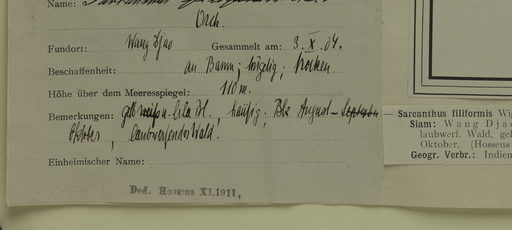 Name:
Orch.
Fundort: Wang Djao Gesammelt am: 3. X. 04.
Beschaffenheit: an Baum; hüglig; trocken
Höhe über dem Meeresspiegel: 110 m.
Bemerkungen: gelb u. lila Bl., häufig; Blz August –
Oktober, laubwerfender Wald.
Einheimischer Name:
Ded. Hosseus XI.1911,
Sarcanthus filiformis Wi
Siam: Wang Dja
laubwerf. Wald, gel
Oktober. (Hosseus
Geogr. Verbr.: Indien